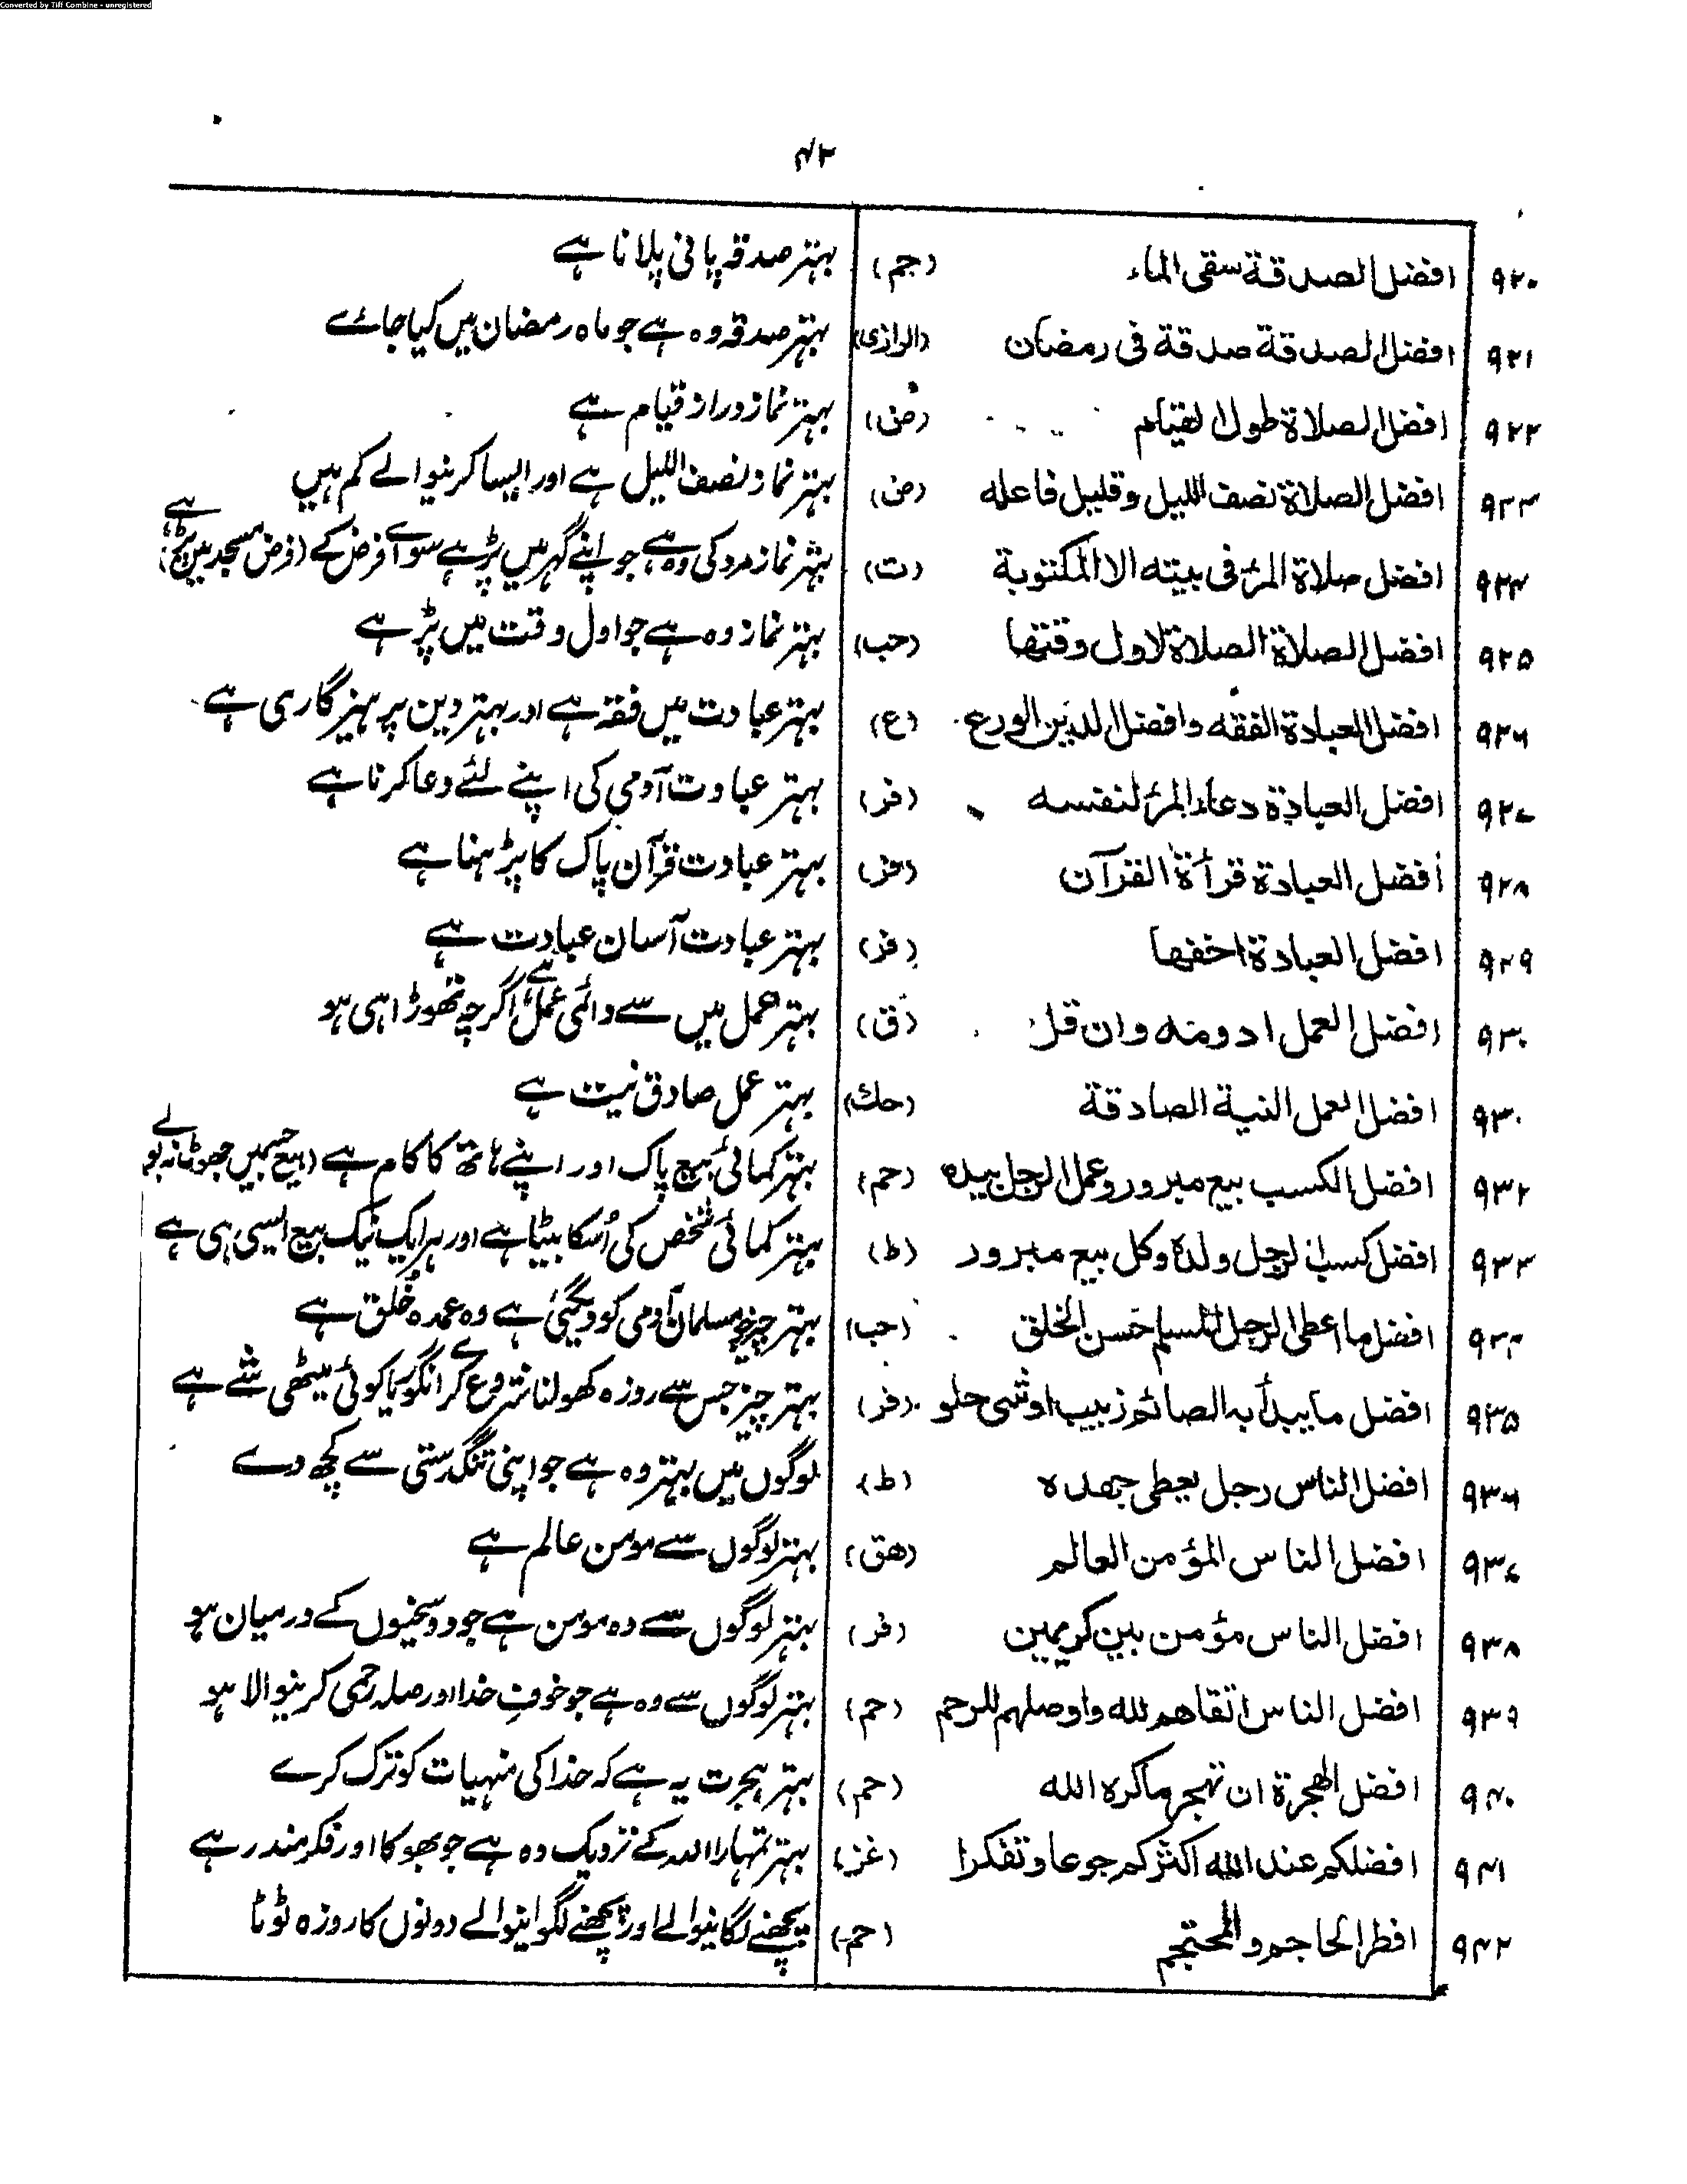 Converted by Tiff Combine - unregistered
۴۲
۹۲۰ افضل الصدقة سقى الماء (حم) بہتر صدقہ پانی پلانا ہے
۹۲۱ افضل الصدقة صدقة فى رمضان (الرازى) بہتر صدقہ وہ ہے جو ماہ رمضان میں کیا جائے
۹۲۲ افضل الصلاة طول القيام (ض) بہتر نماز دراز قیام ہے
۹۲۳ افضل الصلاة نصف الليل وقليل فاعله (ض) بہتر نماز نصف اللیل ہے اور ایسا کرنیوالے کم ہیں
۹۲۴ افضل صلاة المرء فى بيته الا المكتوبة (ت) بہتر نماز مرد کی وہ ہے جو اپنے گہر میں پڑہے سوائے فرض کے (فرض مسجد میں پڑہے)
۹۲۵ افضل الصلاة الصلاة لاول وقتها (حب) بہتر نماز وہ ہے جو اول وقت میں پڑہے
۹۲۶ افضل العبادة الفقه وافضل الدين الورع (ع) بہتر عبادت میں فقہ ہے اور بہتر دین پرہیزگاری ہے
۹۲۷ افضل العبادة دعاء المرء لنفسه (فر) بہتر عبادت آدمی کی اپنے لئے دعا کرنا ہے
۹۲۸ أفضل العبادة قرأة القرآن (فر) بہتر عبادت قرآن پاک کا پڑہنا ہے
۹۲۹ افضل العبادة اخفها (فر) بہتر عبادت آسان عبادت ہے
۹۳۰ افضل العمل ادومه وان قل (ق) بہتر عمل میں سے دائمی عمل ہے اگرچہ تھوڑا ہی ہو
۹۳۰ افضل العمل النية الصادقة (حك) بہتر عمل صادق نیت ہے
۹۳۲ افضل الكسب بيع مبرور وعمل الرجل بيده (حم) بہتر کمائی بیع پاک اور اپنے ہاتھ کا کام ہے (بیع جسمیں جھوٹ نہ بولے
۹۳۳ افضل كسب الرجل ولده وكل بيع مبرور (ط) بہتر کمائی شخص کی اُسکا بیٹا ہے اور ہر ایک نیک بیع ایسی ہی ہے
۹۳۴ افضل ما اعطى الرجل المسلم حسن الخلق (حب) بہتر چیز جو مسلمان آدمی کو دیگئی ہے وہ عمدہ خُلق ہے
۹۳۵ افضل ما يبدأ به الصائم زبيب او شى حلو (فر) بہتر چیز جس سے روزہ کھولنا شروع کرے انگور یا کوئی میٹھی شے ہے
۹۳۶ افضل الناس رجل يعطى جهده (ط) لوگوں میں بہتر وہ ہے جو اپنی تنگدستی سے کچھ دے
۹۳۷ افضل الناس المؤمن العالم (هق) بہتر لوگوں سے مومن عالم ہے
۹۳۸ افضل الناس مؤمن بين كريمين (فر) بہتر لوگوں سے وہ مومن ہے جو دو سخیوں کے درمیان ہو
۹۳۹ افضل الناس اتقاهم لله واوصلهم للرحم (حم) بہتر لوگوں سے وہ ہے جو خوفِ خدا اور صلہ رحمی کرنیوالا ہو
۹۴۰ افضل الهجرة ان تهجر ما كره الله (حم) بہتر ہجرت یہ ہے کہ خدا کی منہیات کو ترک کرے
۹۴۱ افضلكم عند الله اكثركم جوعا وتفكرا (غز) بہتر تمہارا اللہ کے نزدیک وہ ہے جو بھوکا اور فکرمند رہے
۹۴۲ افطر الحاجم والمحتجم (حم) پچھنے لگانیوالے اور پچھنے لگوانیوالے دونوں کا روزہ ٹوٹا